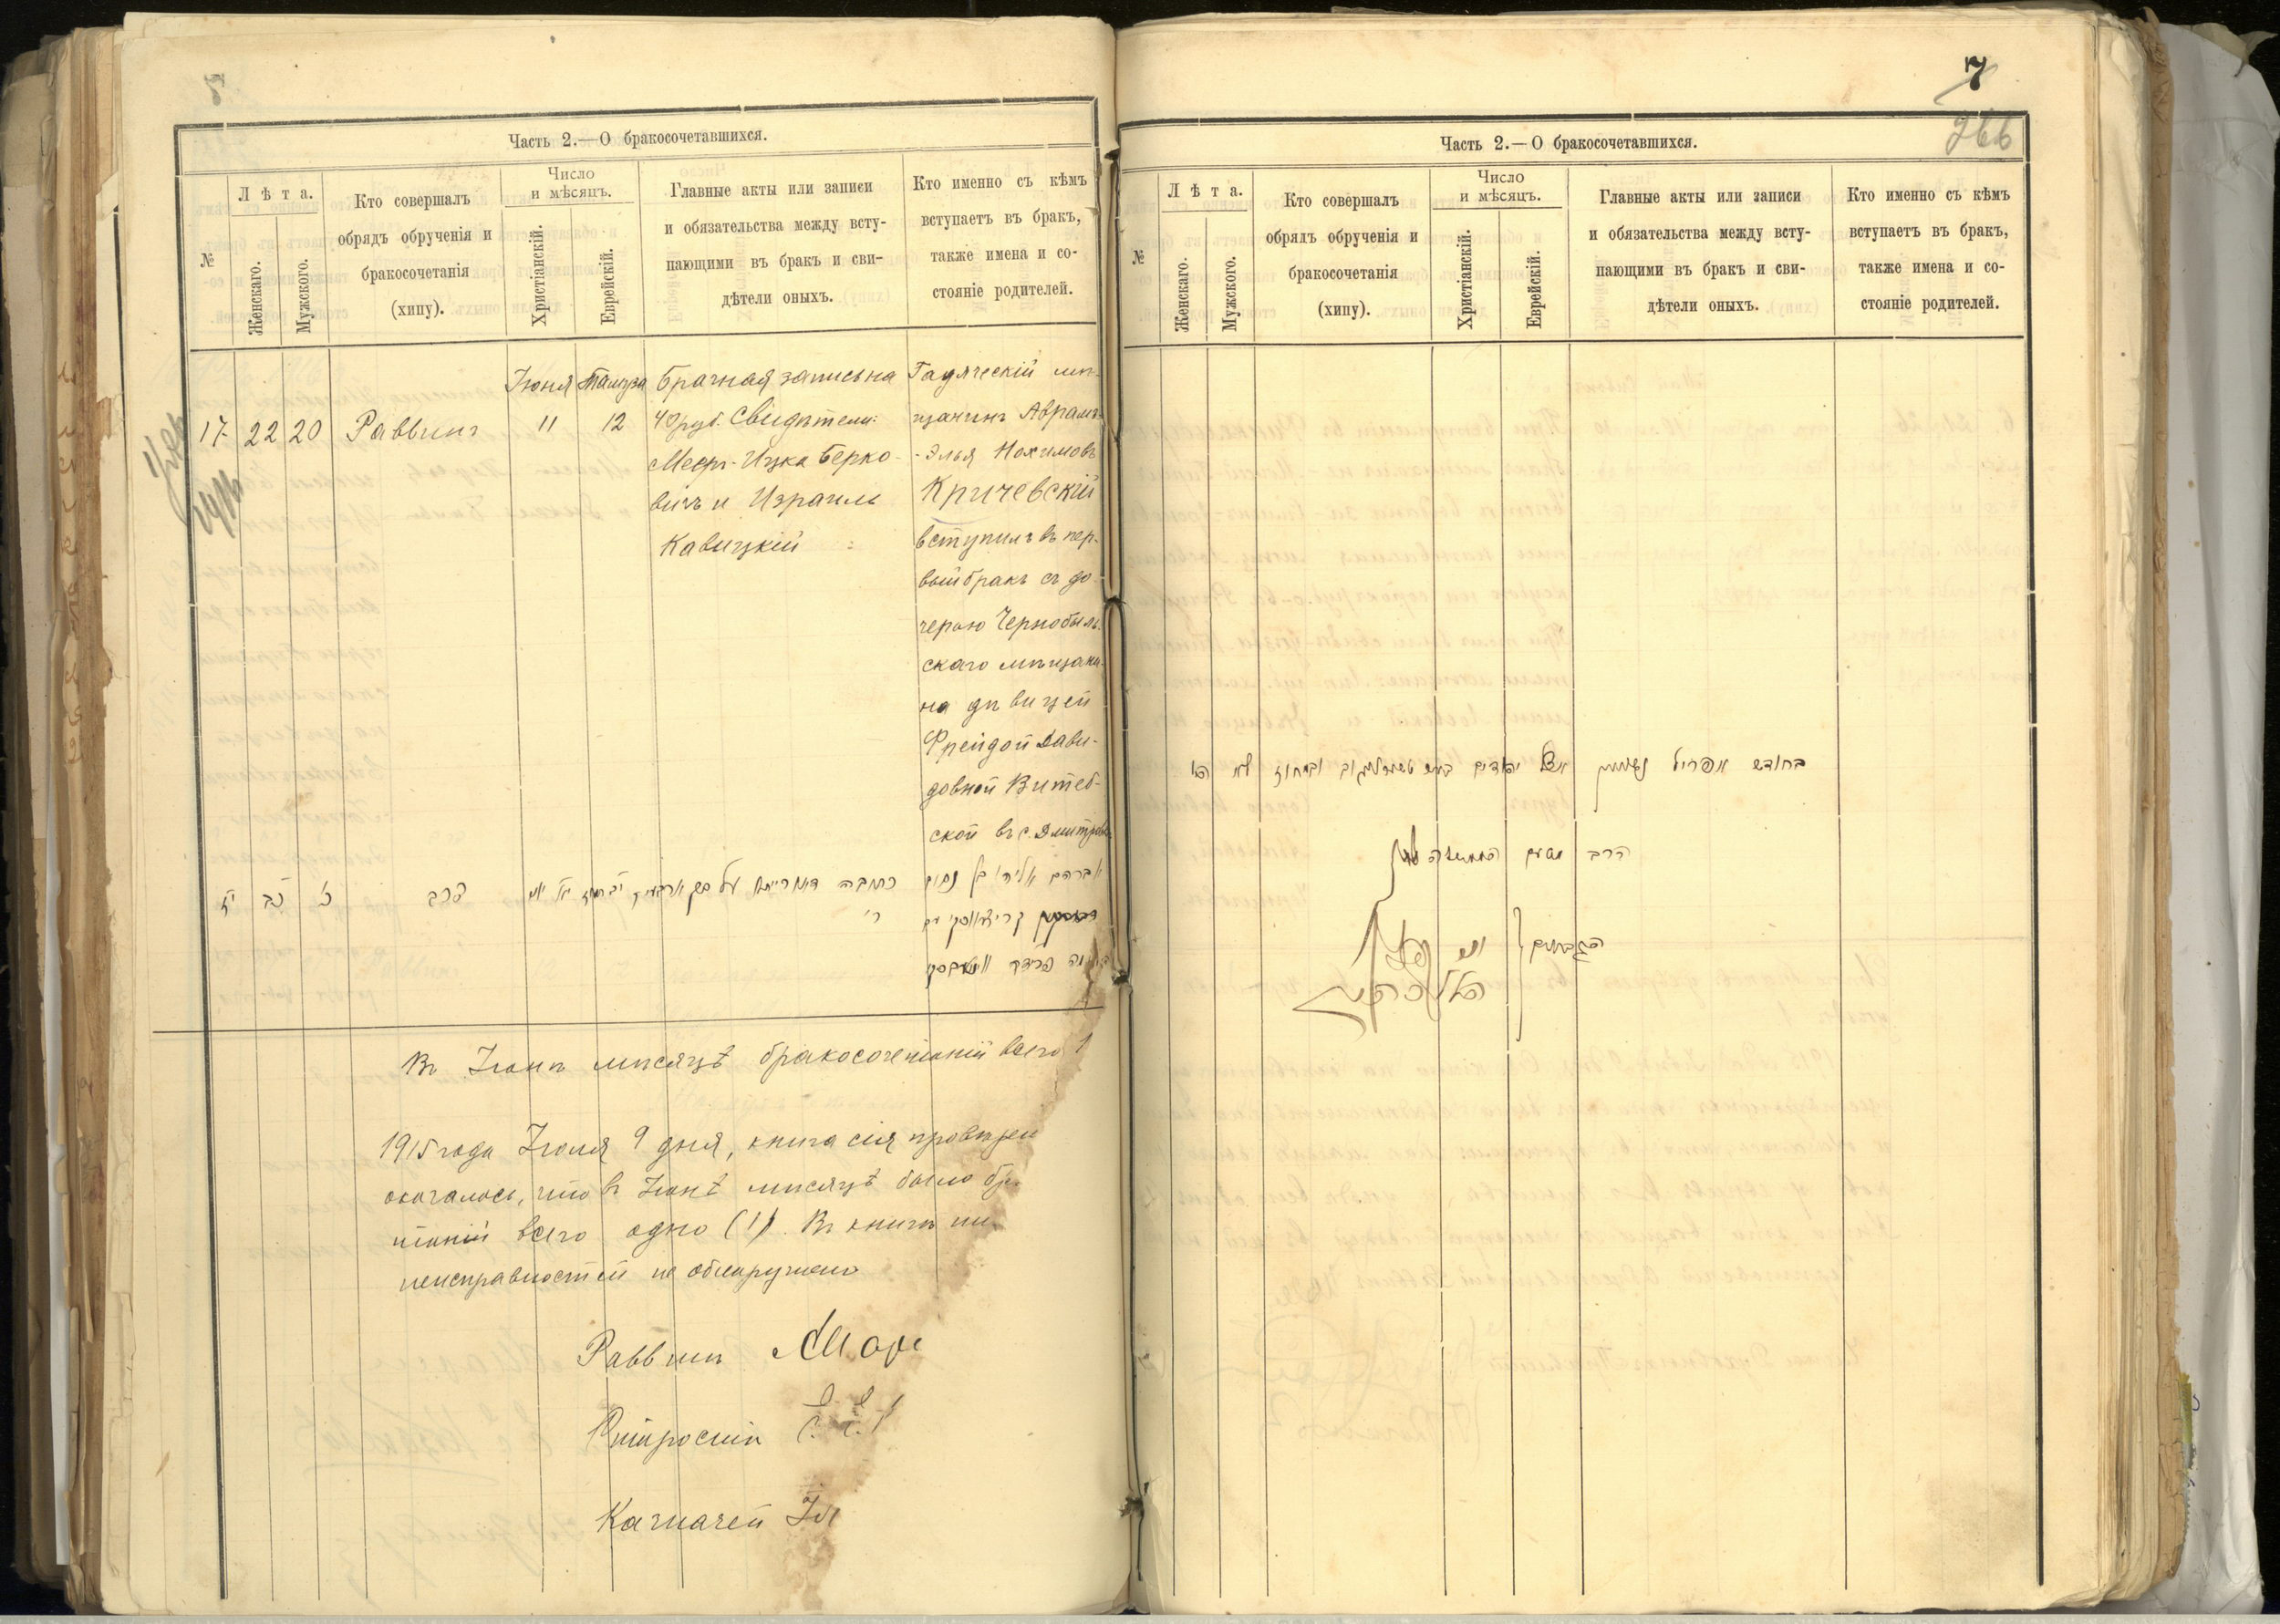 Часть 2.—О бракосочетавшихся.
№
Лѣта.
Женскаго.
Мужского.
Кто совершалъ
обрядъ обрученія и
бракосочетанія
(хипу).
Число
и мѣсяцъ.
Христіанскій.
Еврейскій.
Главные акты или записи
и обязательства между всту-
пающими въ бракъ и сви-
дѣтели оныхъ.
Кто именно съ кѣмъ
вступаетъ въ бракъ,
также имена и со-
стояніе родителей.
17.
22
20
Раввинъ
Іюня
11
Тамуза
12
Брачная запись на
40 руб. Свидѣтели:
Мееръ-Ицка Берко-
вичъ и Израиль
Кавицкій
Гадяческій мѣ-
щанинъ Абрамъ-
-Элья Нохимовъ
Кричевскій
вступилъ въ пер-
вый бракъ съ до-
черью Чернобыль-
скаго мѣщани-
на дѣвицей
Фрейдой Дави-
довной Витеб-
ской въ с.
יז
כב
כ
הרב
יא
כתובה דאורייתא על סך
אברהם אליהו בן נחום
קריצעווסקי עם
פריידע וויטעבסקי
Въ Іюнѣ мѣсяцѣ бракосочетаній всего 1
1915 года Іюля 9 дня, книга сія провѣрен
оказалось, что въ Іюнѣ мѣсяцѣ было бр
таній всего одно (1). Въ книгѣ ни
неисправностей не обнаружено
Раввинъ
Казначей
7
266
Часть 2.—О бракосочетавшихся.
№
Лѣта.
Женскаго.
Мужского.
Кто совершалъ
обрядъ обрученія и
бракосочетанія
(хипу).
Число
и мѣсяцъ.
Христіанскій.
Еврейскій.
Главные акты или записи
и обязательства между всту-
пающими въ бракъ и сви-
дѣтели оныхъ.
Кто именно съ кѣмъ
вступаетъ въ бракъ,
также имена и со-
стояніе родителей.
בחודש אפריל אצל יהודים
הרב
הגבאים